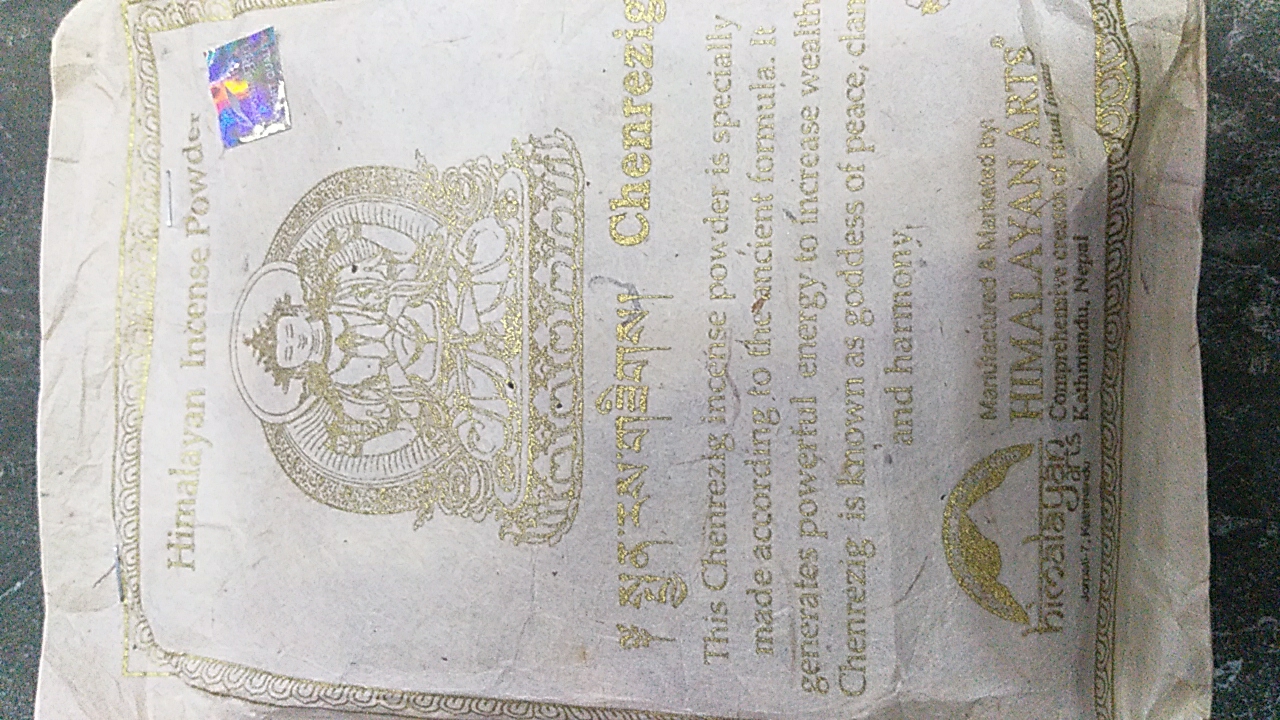 Himalayan Incense Powder
༄ སྤྱན་རས་གཟིགས། Chenrezig
This Chenrezig incense powder is specially
made according to the ancient formula. It
generates powerful energy to increase wealth
Chenrezig is known as goddess of peace,
and harmony,
Manufactured & Marketed by:
HIMALAYAN ARTS®
Comprehensive creation of ritual items
Kathmandu, Nepal
himalayan
arts
Kathmandu